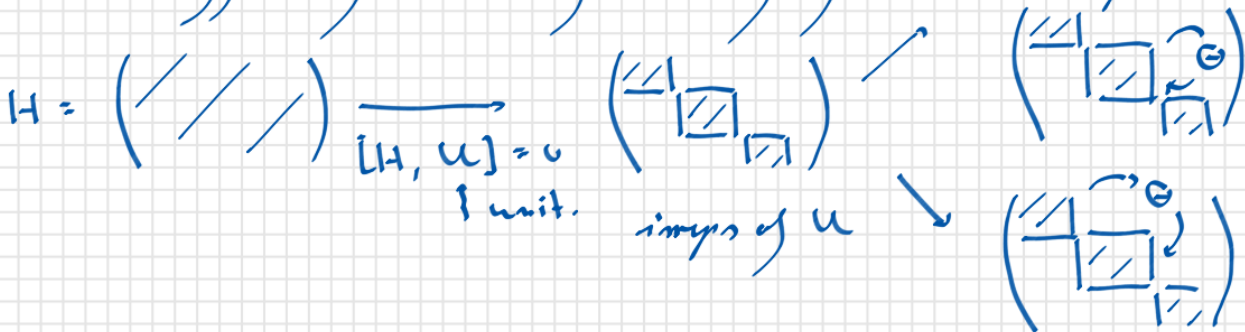 H =
[H, U] = 0
unit.
irreps of U
Θ
Θ